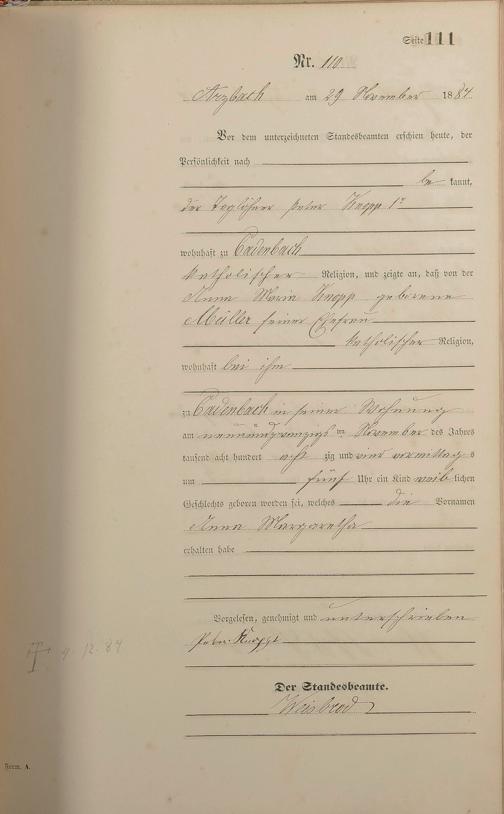 Seite 111
Nr. 110.
Arzbach am 29 November 1884
Vor dem unterzeichneten Standesbeamten erschien heute, der
Persönlichkeit nach
be kannt,
der Taglöhner Peter Knopp 1r
wohnhaft zu Cadenbach
katholischer Religion, und zeigte an, daß von der
Anna Maria Knopp geborene
Müller seiner Ehefrau
katholischer Religion,
wohnhaft bei ihm
zu Cadenbach in seiner Wohnung
am neunundzwanzigs ten November des Jahres
tausend acht hundert acht zig und vier vormittag s
um fünf Uhr ein Kind weib lichen
Geschlechts geboren worden sei, welches die Vornamen
Anna Margaretha
erhalten habe
Vorgelesen, genehmigt und unterschrieben
Peter Knopp
Der Standesbeamte.
Weisbrod
† 9. 12. 84
Form. A.